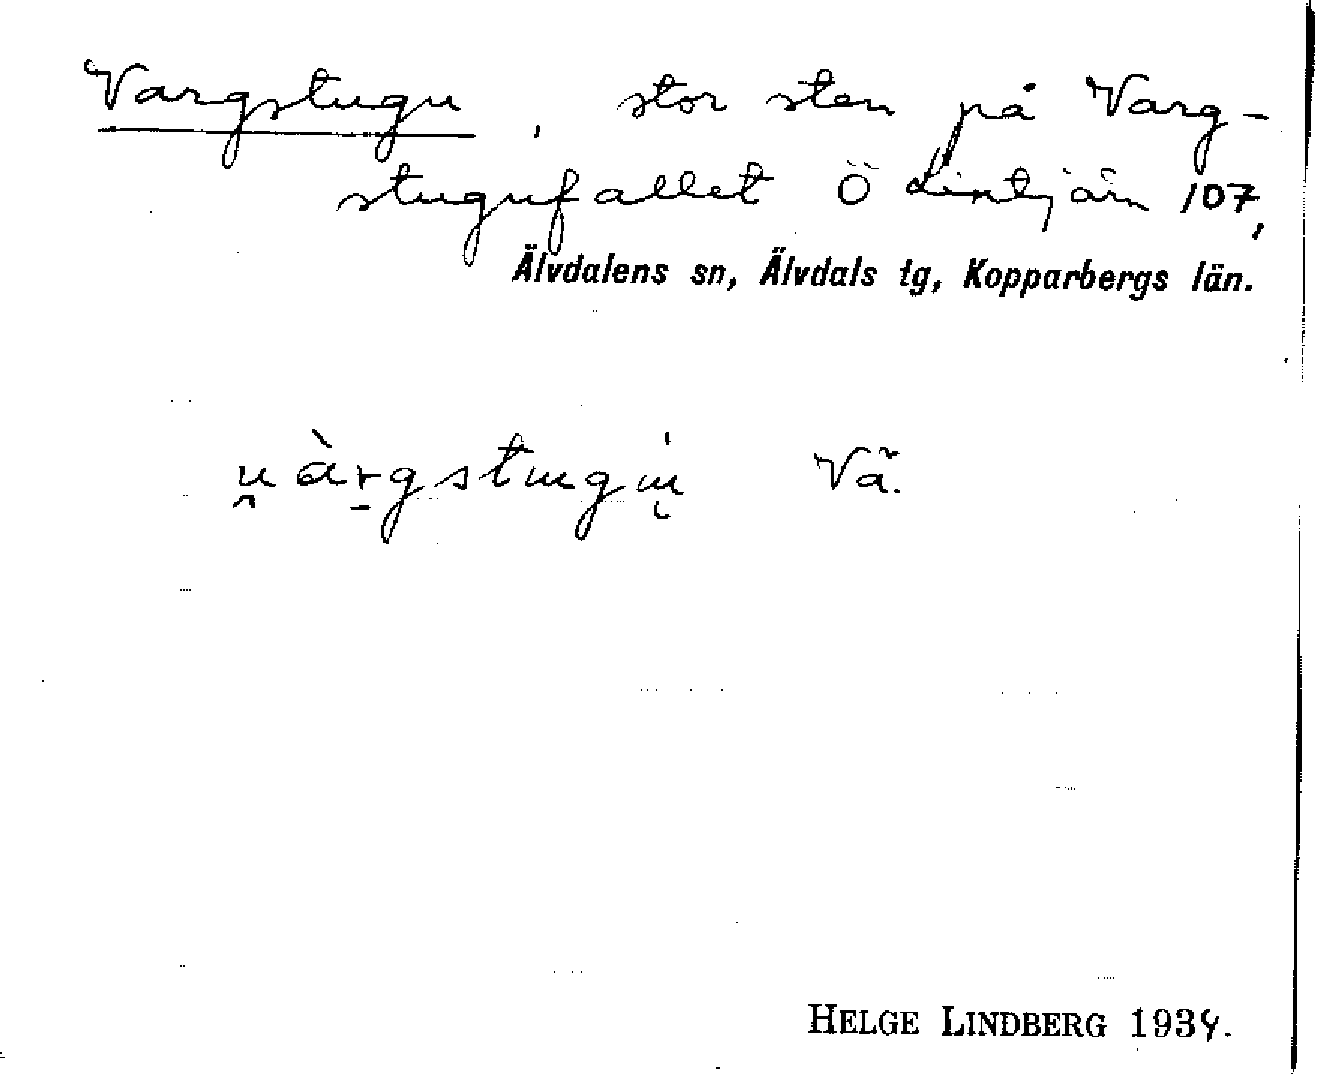 Vargstugu, stor sten på Varg-
stugufallet Ö Lintjärn 107,
Älvdalens sn, Älvdals tg, Kopparbergs län.
Vä.
HELGE LINDBERG 1934.